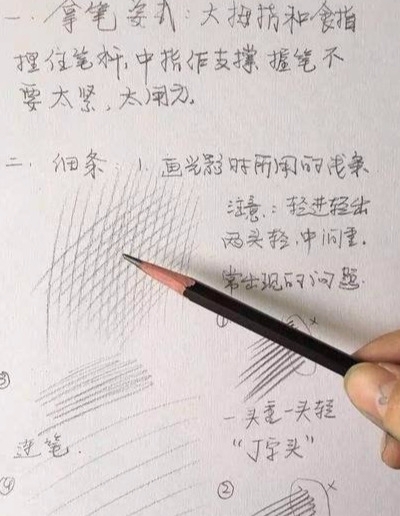 一. 拿笔姿式: 大拇指和食指
捏住笔杆, 中指作支撑, 握笔不
要太紧, 太用力.
二. 细条: 1. 画光影时所用的线条
注意: 轻进轻出
两头轻, 中间重.
常出现的问题:
① x
一头重一头轻
"丁字头"
③
连笔.
④
② x